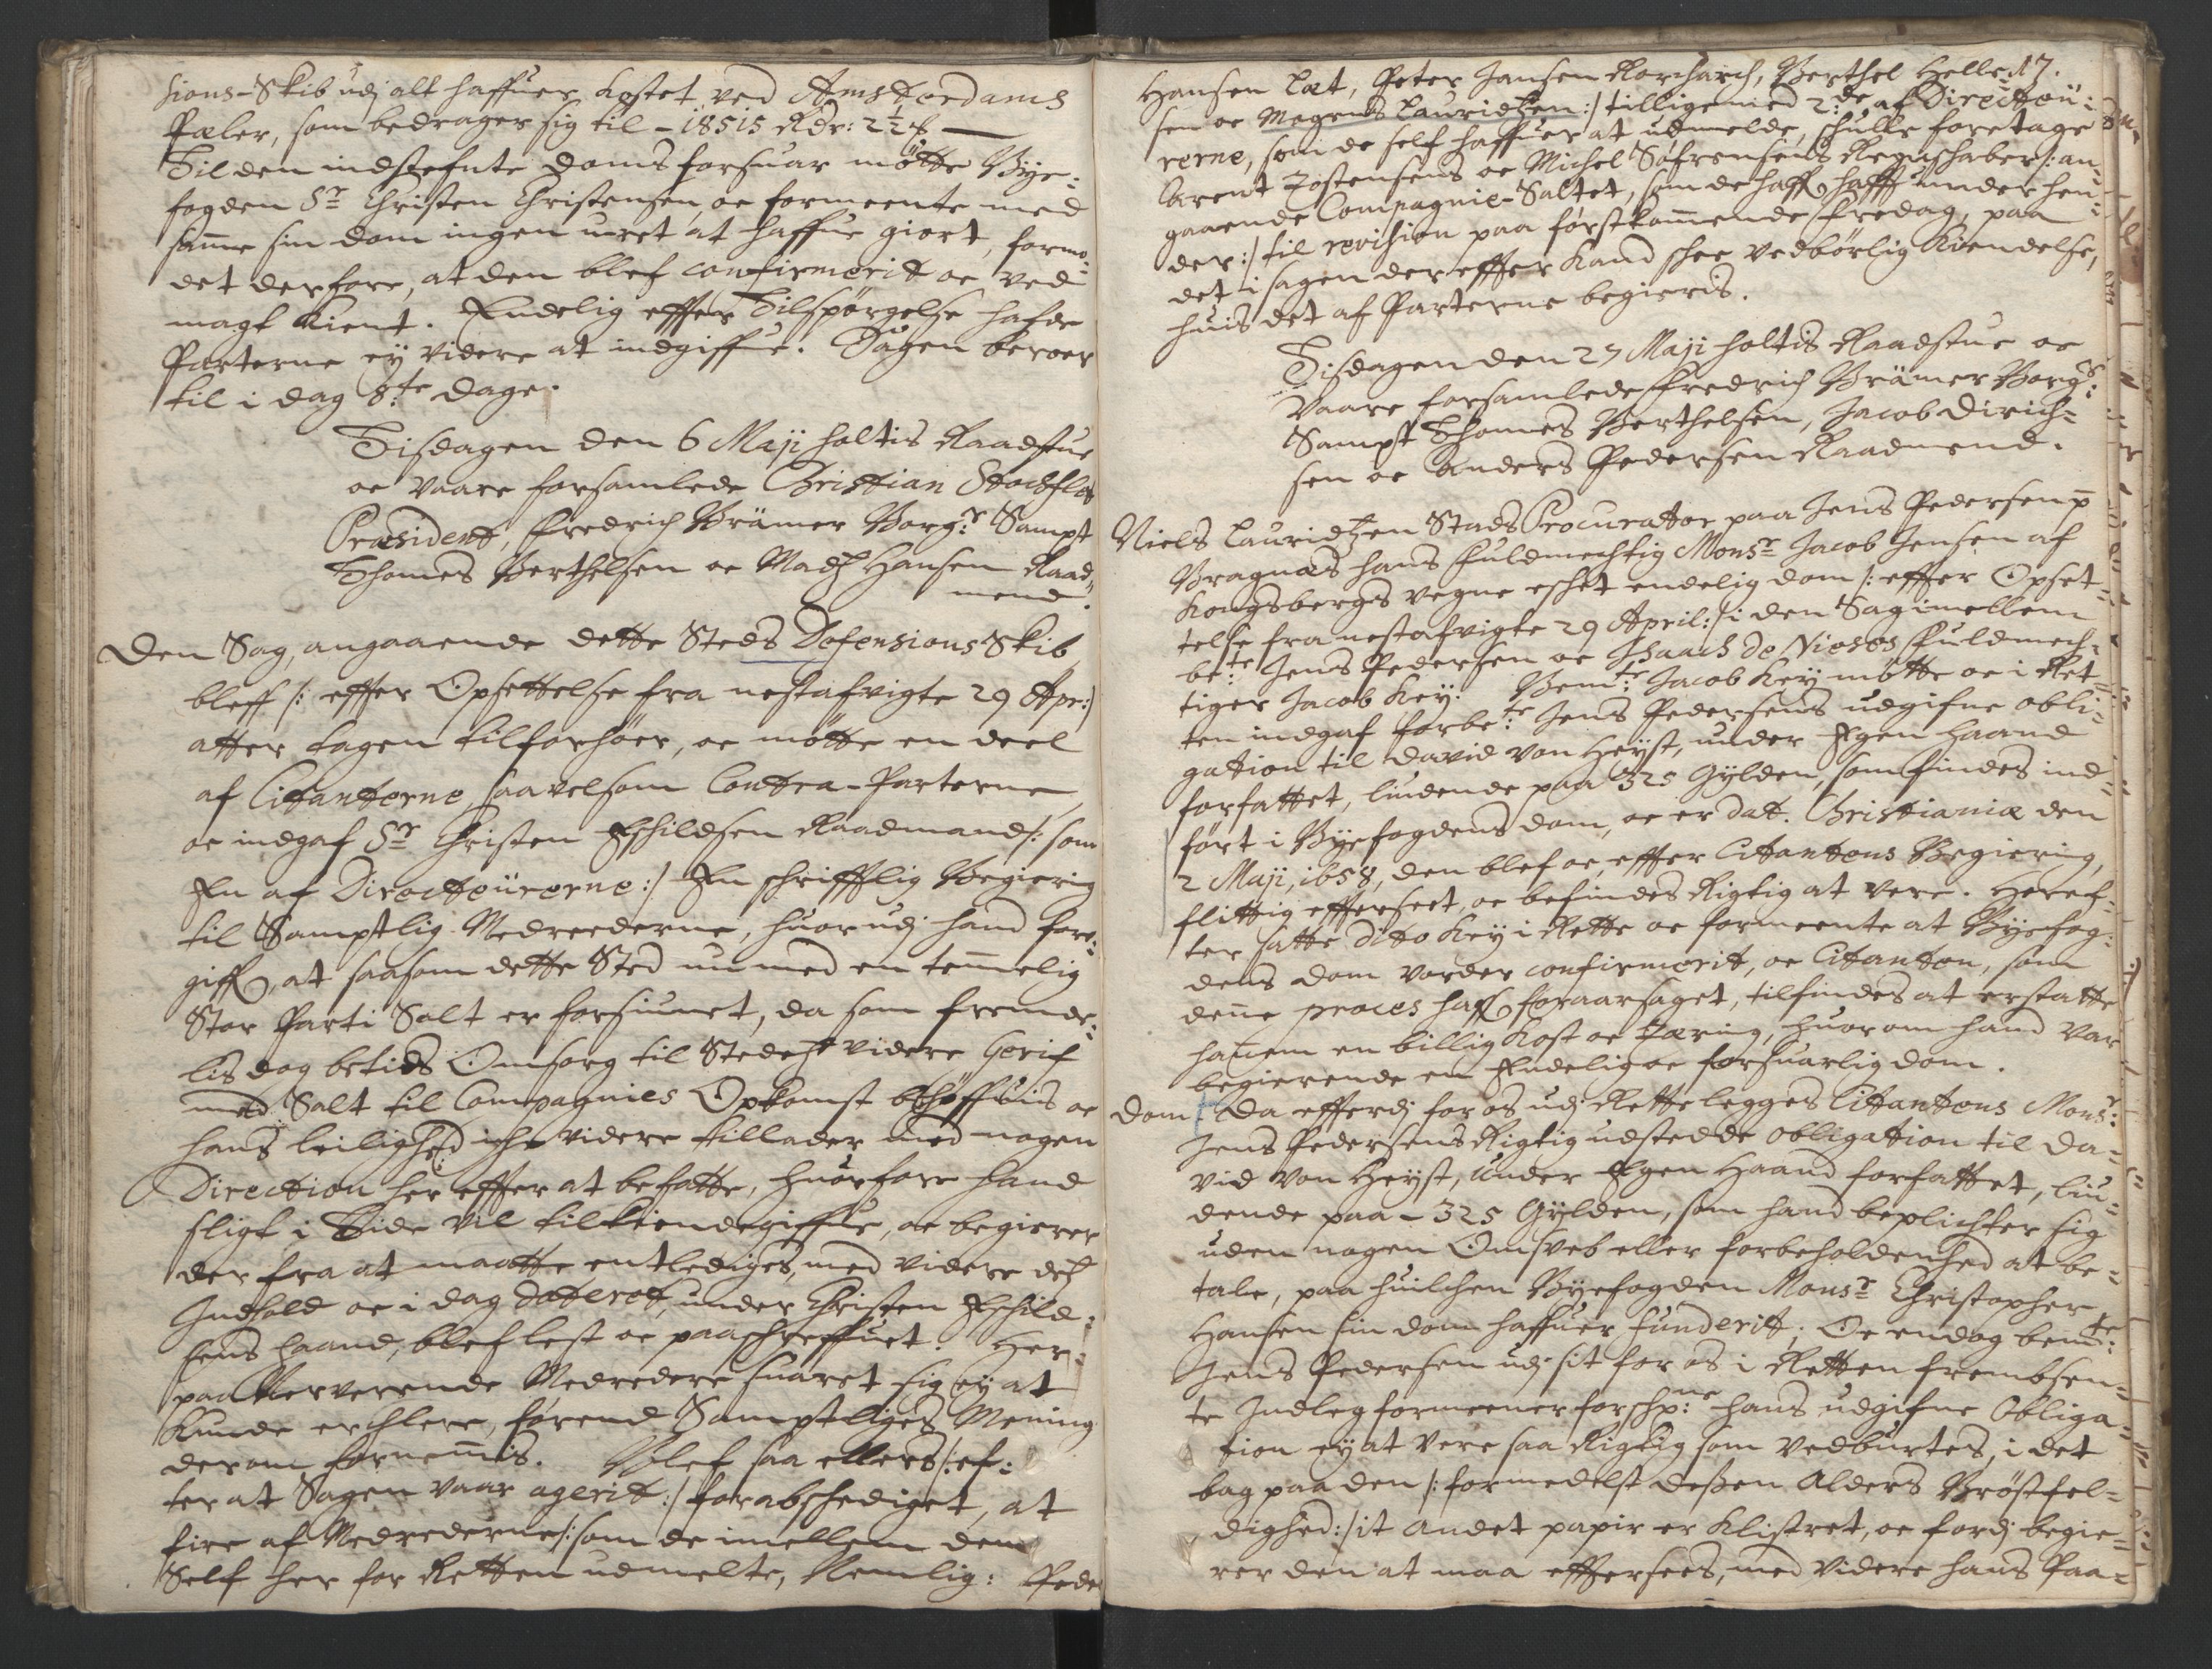 sions-Skib udj alt haffuer kostet, ved Amsterdams
Pæler, som bedrager sig til - 18515 Rdr: 2½ s —
Til den indstefnte doms forsuar møtte Bye-
fogden Sr Christen Christensen, oc formeente med
samme sin dom ingen uret at haffue giort, formo-
det derfore, at den blef confirmerit oc ved
magt kient. Endelig effter Tilspørgelse hafde
Parterne ey videre at indgiffue. Sagen beroer
til i dag 8te dage.
Tisdagen den 6 Maji holtis Raadstue
oc vaare forsamlede Christian Stochflet
Præsident, Fredrich Brämer Borg:r Sampt
Thomes Berthelsen oc Madz Hansen Raad-
mend.
Den Sag, angaaende dette Steds Defensions Skib
bleff /: effter Opsettelse fra nestafvigte 29 Apr:/
atter tagen til forhøer, oc møtte en deel
af Citanterne, saavelsom Contra-Parterne,
oc indgaf Sr Christen Eschildsen Raadmand /: som
En af Directeürerne:/ En schrifftlig Begiering
til Samptlig Medreederne, huorudj hand fore-
giff, at saasom dette Sted nu med en temmelig
Stor Parti Salt er forsiunet, da som fremde-
lis dog betids Omsorg til Stedetz videre
med Salt til Compagnies Opkomst behøffuis oc
hans leilighed iche videre tillader med nogen
Direction her effter at befatte, huorfore hand
sligt i Tide vil tilkiendegiffue, oc begierer
der fra at maatte entlediges, med videre detz
Indhold oc i dag dateret, under Christen Eschild-
sens haand, blef lest oc paaschreffuet. Her-
paa Nerverende Medredere suaret sig ey at
kunde erchlere, førend Samptliges Mening
derom fornemmis. Blef saa ellers /: ef-
ter at Sagen vaar agerit:/ forabschediget, at
fire af Medrederne /: som de imellem dem
Self her for Retten udmelte, Nemlig: Peder
Hansen Læt, Peter Jansen Rorcharch, Berthel Helle- 17.
sen oc Mogens Lauridtzen:/ tilligemed 2:de af Directeü-
rerne, som de self haffuer at udmelde, schulle foretage
Arent Tostensens oc Michel Søfrensens Regnschaber /: an-
gaaende Compagnie-Saltet, som de haff: hafft under hen-
der:/ til revision paa førstkommende fredag, paa
det i sagen dereffter kand schee vedbørlig kiendelse,
huis det af Parterne begieris.
Tisdagen den 27 Maji holtis Raadstue oc
vaare forsamlede Fredrich Brämer Borg:r
Sampt Thomes Berthelsen, Jacob Dirich-
sen oc Anders Pedersen Raadmend.
Niels Lauridtzen Stads Procurator paa Jens Pedersen p
Bragnæs hans fuldmechtig Monsr Jacob Jensen af
Kongsbergs vegne eschet endelig dom /: effter Opset-
telse fra nestafvigte 29 April:/ i den Sag imellem
be:te Jens Pedersen oc Jsaach de fuldmech-
tiger Jacob Key. Bem:te Jacob Key møtte oc i Ret-
ten indgaf forbe:te Jens Pedersens udgifne obli-
gation til David von Heyst, under Egen haand
forfattet, liudende paa 325 Gylden, som findes ind-
ført i Byefogdens dom, oc er dat. Christianiæ den
2 Maji, 1658, den blef oc, effter Citantens Begiering,
flittig efftersect, oc befindes Rigtig at vere. Heref-
ter satte dito Key i Rette oc formeente at Byefog-
dens dom vorder confirmerit, oc Citanten, som
denne proces haff: foraarsaget, tilfindes at erstatte
hannem en billig Kost oc tæring, huorom hand var
begierende en Endelig oc forsuarlig dom.
Dom Da effterdj for os udj Rette legges Citantens Monsr:
Jens Pedersens Rigtig udstedde obligation til Da-
vid von Heyst, under Egen Haand forfattet, liu-
dende paa - 325 Gylden, som hand beplichter sig
uden nogen Omsveb eller forbeholdenhed at be-
tale, paa huilchen Byefogden Monsr Christopher
Hansen sin dom haffuer funderit; Oc endog bem:te
Jens Pedersen udj sit for os i Retten frembsen-
te Indleg formeener forschr:ne hans udgifne Obliga-
tion ey at vere saa Rigtig som vedburtes, i det
bag paa den /: formedelst dessen Alders Brøstfel-
dighed:/ it andet papir er klistret, oc fordj begie-
rer den at maa efftersees, med videre hans Paa-